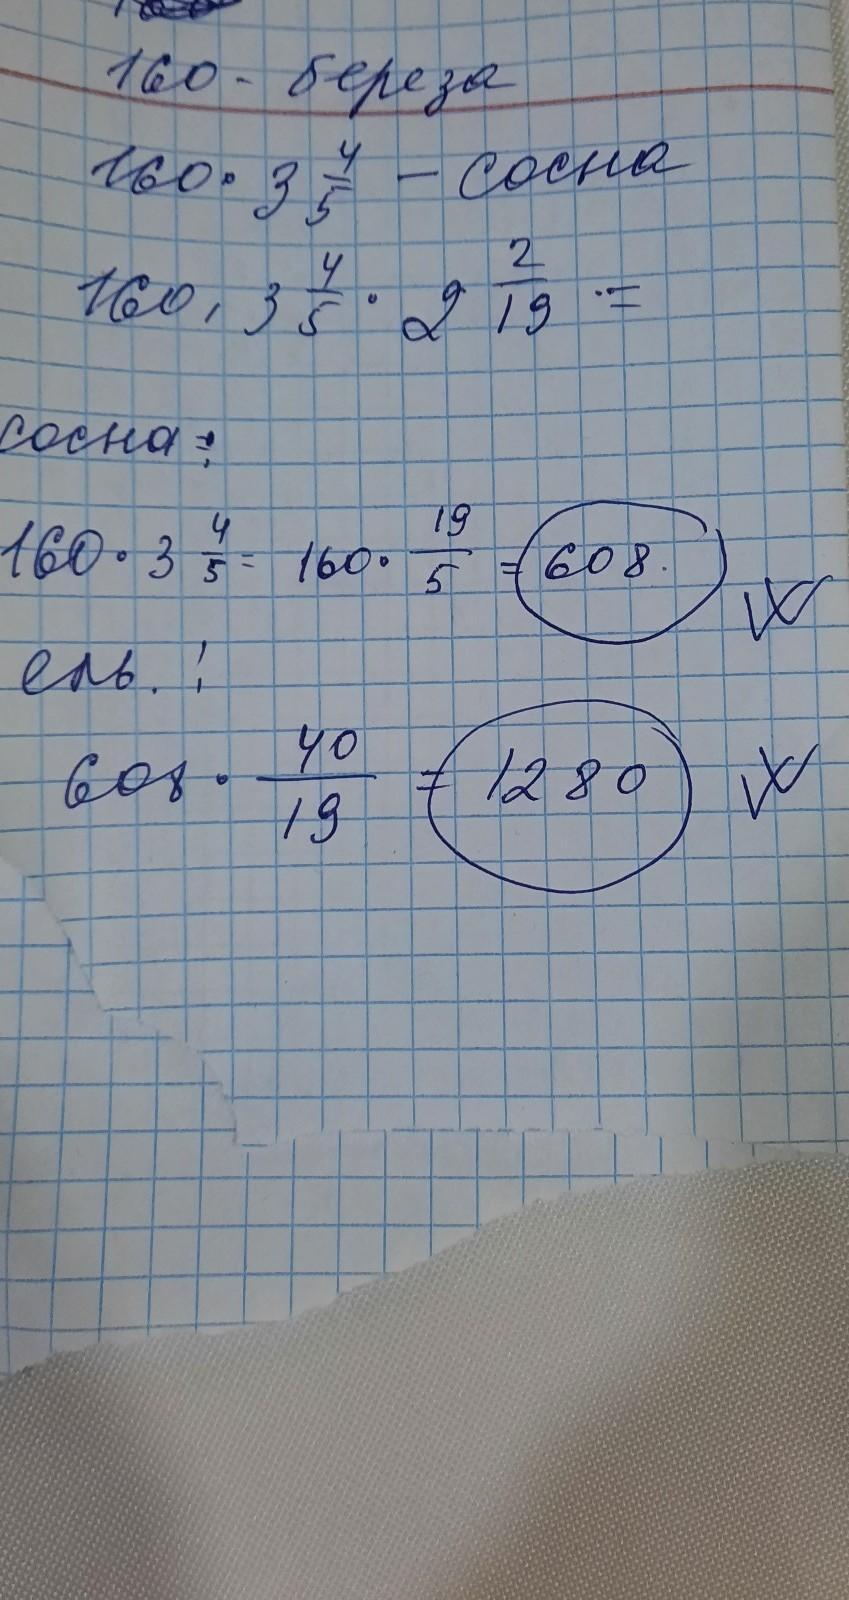 160 - береза
160 · 3 4/5 - сосна
160 , 3 4/5 · 2 2/19 · =
сосна:
160 · 3 4/5 = 160 · 19/5 = 608.
ель. :
608 · 40/19 = 1280